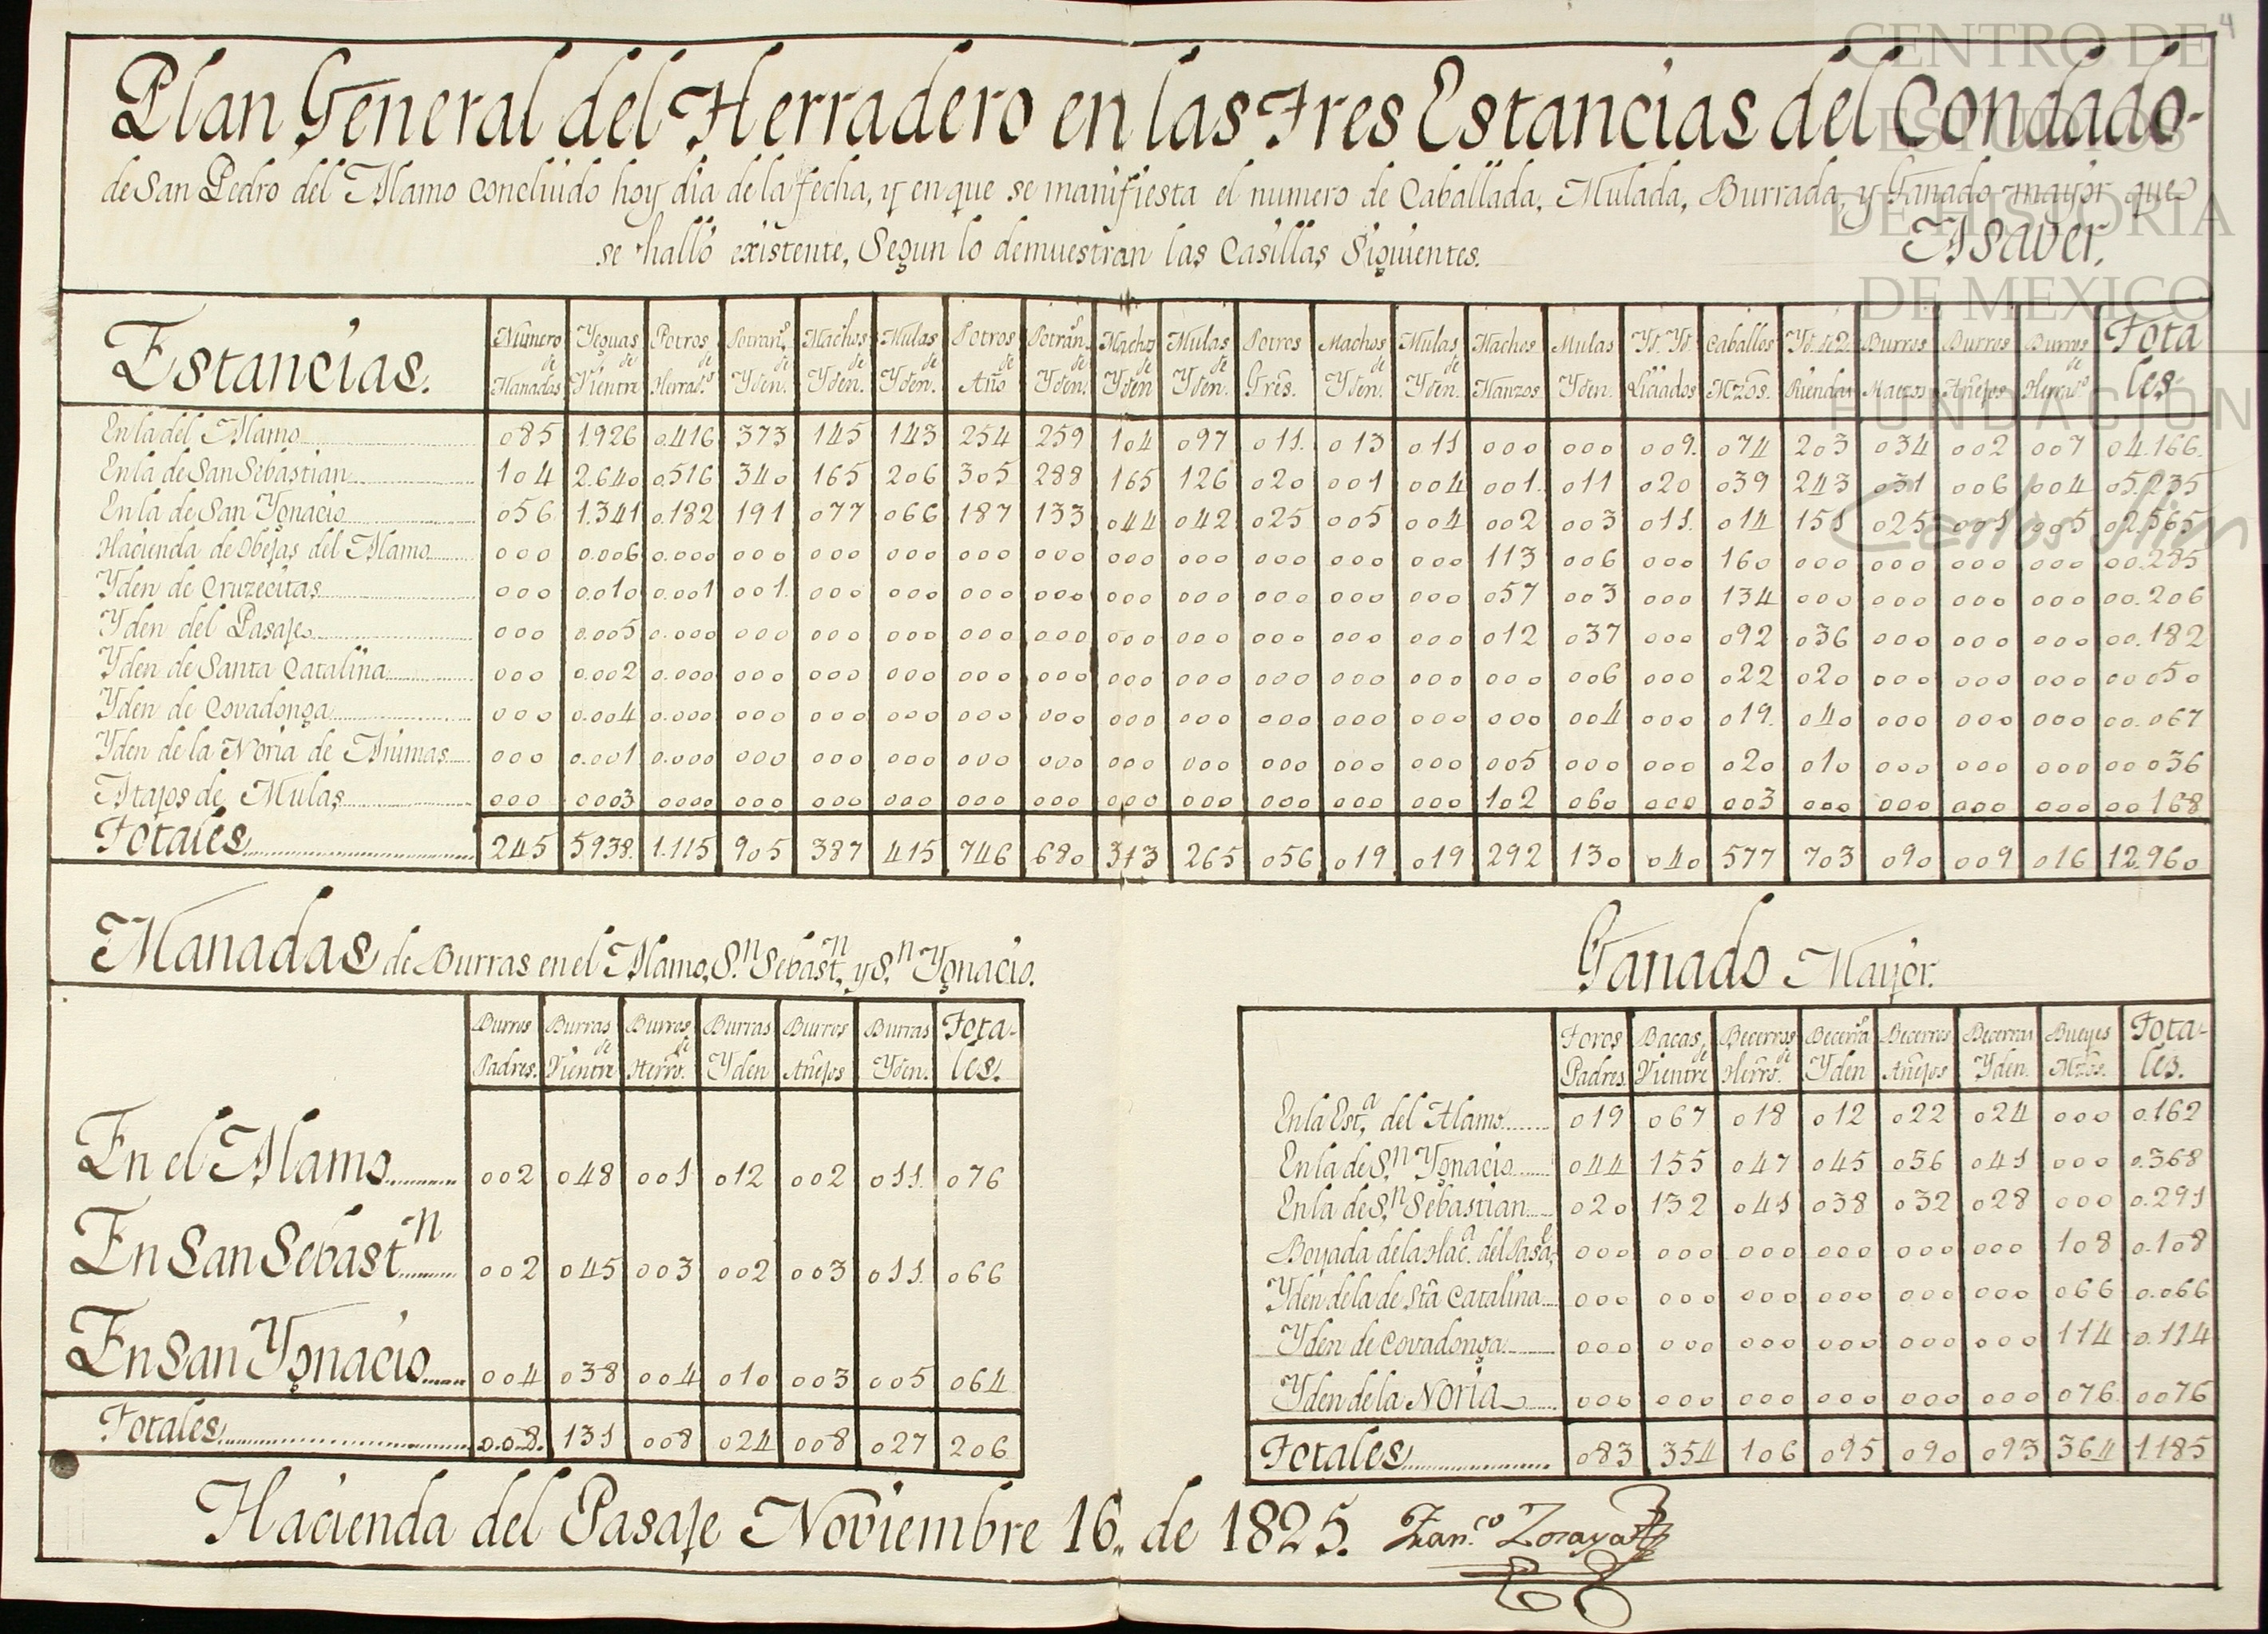 4
CENTRO DE
ESTUDIOS
DE HISTORIA
DE MEXICO
FUNDACION
Carlos Slim
Plan General del Herradero en las Tres Estancias del Condado
de San Pedro del Alamo concluido hoy dia de la fecha, y en que se manifiesta el numero de Caballada, Mulada, Burrada, y Ganado mayor que
se halló existente, Segun lo demuestran las Casillas Siguientes. A Saver.
Estancias. | Numero de Manadas | Yeguas de Vientre | Potros de Herrad.o | Potran.s de Yden. | Machos de Yden. | Mulas de Yden. | Potros de Año | Potran.s de Yden. | Machos de Yden | Mulas de Yden. | Potros Tres. | Machos de Yden. | Mulas de Yden. | Machos Manzos | Mulas Yden. | Yd. Yd. Liciados | Caballos Mzos. | Yd. de 2. Riendas | Burros Maezos | Burros Añejos | Burros de Herrad.o | Totales.
En la del Alamo 085 1.926 0.416 373 145 143 254 259 104 097 011. 013 011 000 000 009. 074 203 034 002 007 04.166.
En la de San Sebastian 104 2.640 0.516 340 165 206 305 288 165 126 020 001 004 001. 011 020 039 243 031 006 004 05.235
En la de San Ygnacio 056 1.341 0.182 191 077 066 187 133 044 042 025 005 004 002 003 011. 014 151 025 001 005 02.565
Hacienda de Obejas del Alamo 000 0.006 0.000 000 000 000 000 000 000 000 000 000 000 113 006 000 160 000 000 000 000 00.285
Yden de Cruzecitas 000 0.010 0.001 001. 000 000 000 000 000 000 000 000 000 057 003 000 134 000 000 000 000 00.206
Yden del Pasaje 000 0.005 0.000 000 000 000 000 000 000 000 000 000 000 012 037 000 092 036 000 000 000 00.182
Yden de Santa Catalina 000 0.002 0.000 000 000 000 000 000 000 000 000 000 000 000 006 000 022 020 000 000 000 00 050
Yden de Covadonga 000 0.004 0.000 000 000 000 000 000 000 000 000 000 000 000 004 000 019. 040 000 000 000 00.067
Yden de la Noria de Animas 000 0.001 0.000 000 000 000 000 000 000 000 000 000 000 005 000 000 020 010 000 000 000 00 036
Atajos de Mulas 000 0003 0000 000 000 000 000 000 000 000 000 000 000 102 060 000 003 000 000 000 000 00 168
Totales 245 5938. 1.115 905 387 415 746 680 313 265 056 019 019 292 130 040 577 703 090 009 016 12.960
Manadas de Burras en el Alamo, S.n Sebast.n, y S.n Ygnacio.
Burros Padres. | Burras de Vientre | Burros de Herro. | Burras Yden | Burros Añejos | Burras Yden. | Totales.
En el Alamo 002 048 001 012 002 011. 076
En San Sebast.n 002 045 003 002 003 011. 066
En San Ygnacio 004 038 004 010 003 005 064
Totales 0.0.8. 131 008 024 008 027 206
Ganado Mayor.
Toros Padres. | Bacas de Vientre | Becerros de Herro. | Becerra.s Yden | Becerros Añejos | Becerras Yden. | Bueyes Mzos. | Totales.
En la Est.a del Alamo 019 067 018 012 022 024 000 0.162
En la de S.n Ygnacio 044 155 047 045 036 041 000 0.368
En la de S.n Sebastian 020 132 041 038 032 028 000 0.291
Boyada de la Hac.a del Pasa.e 000 000 000 000 000 000 108 0.108
Yden de la de Sta Catalina 000 000 000 000 000 000 066 0.066
Yden de Covadonga 000 000 000 000 000 000 114 0.114
Yden de la Noria 000 000 000 000 000 000 076 0076
Totales 083 354 106 095 090 093 364 1185
Hacienda del Pasaje Noviembre 16. de 1825. Fran.co